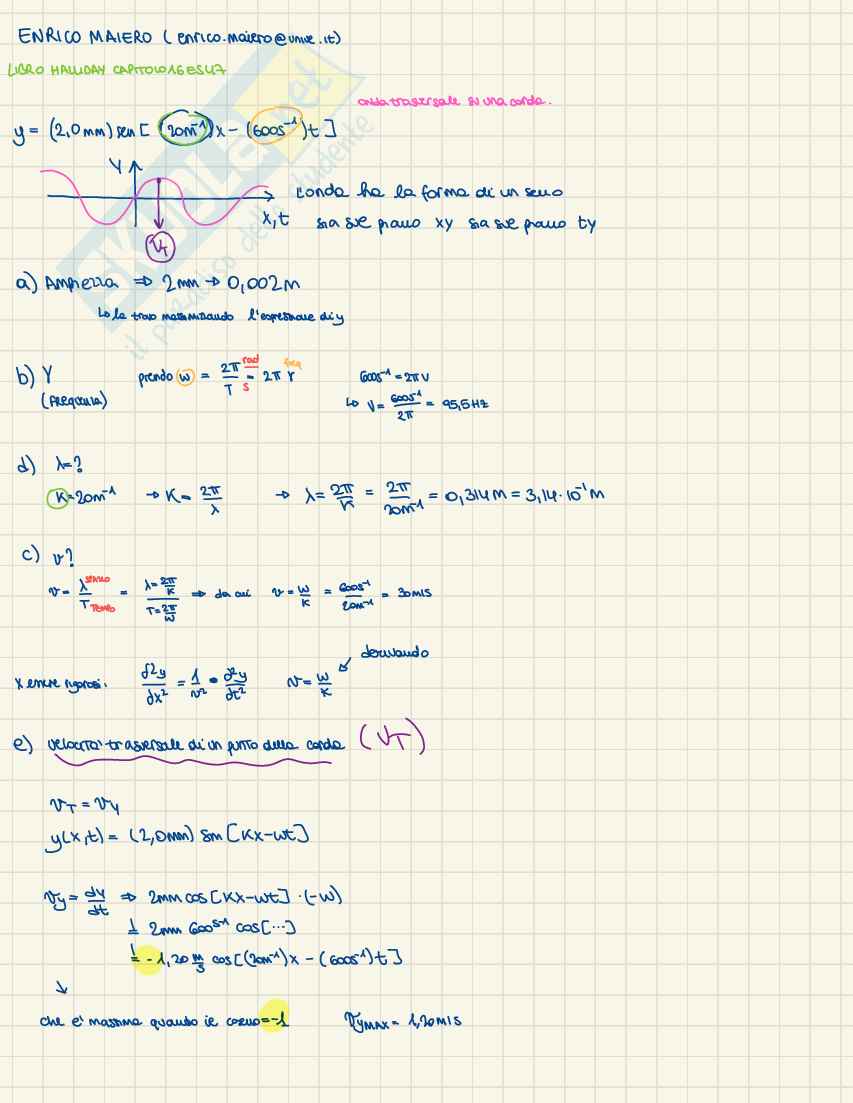 ENRICO MAIERO (enrico.maiero@unive.it)
LIBRO HALLIDAY CAPITOLO 16 ES 47
onda trasversale su una corda.
y = (2,0 mm) sen [ (20m⁻¹)x - (600s⁻¹)t ]
Y
X,t
V_T
L'onda ha la forma di un seno
sia sul piano xy sia sul piano ty
a) Ampiezza ⇒ 2mm → 0,002m
↳ la trovo massimizzando l'espressione di y
b) γ prendo ω = 2π/T rad/s = 2π γ freq 600s⁻¹ = 2πν
(FREQUENZA) ↳ ν = 600s⁻¹/2π = 95,5 Hz
d) λ=?
K=20m⁻¹ → K = 2π/λ → λ = 2π/K = 2π/20m⁻¹ = 0,314 m = 3,14·10⁻¹ m
c) v?
v = λ SPAZIO / T TEMPO = λ=2π/K / T=2π/ω ⇒ da cui v = ω/K = 600s⁻¹/20m⁻¹ = 30 m/s
derivando
x essere rigorosi. d²y/dx² = 1/v² • d²y/dt² v = ω/K
e) velocità trasversale di un punto della corda (V_T)
v_T = v_y
y(x,t) = (2,0mm) sin [Kx-ωt]
v_y = dy/dt ⇒ 2mm cos [Kx-ωt] ·(-ω)
= 2mm 600s⁻¹ cos[...]
= -1,20 m/s cos [(20m⁻¹)x - (600s⁻¹)t]
↘
che e' massima quando il coseno=-1 V_yMAX = 1,20 m/s
SKUOLA.net
il paradiso dello studente